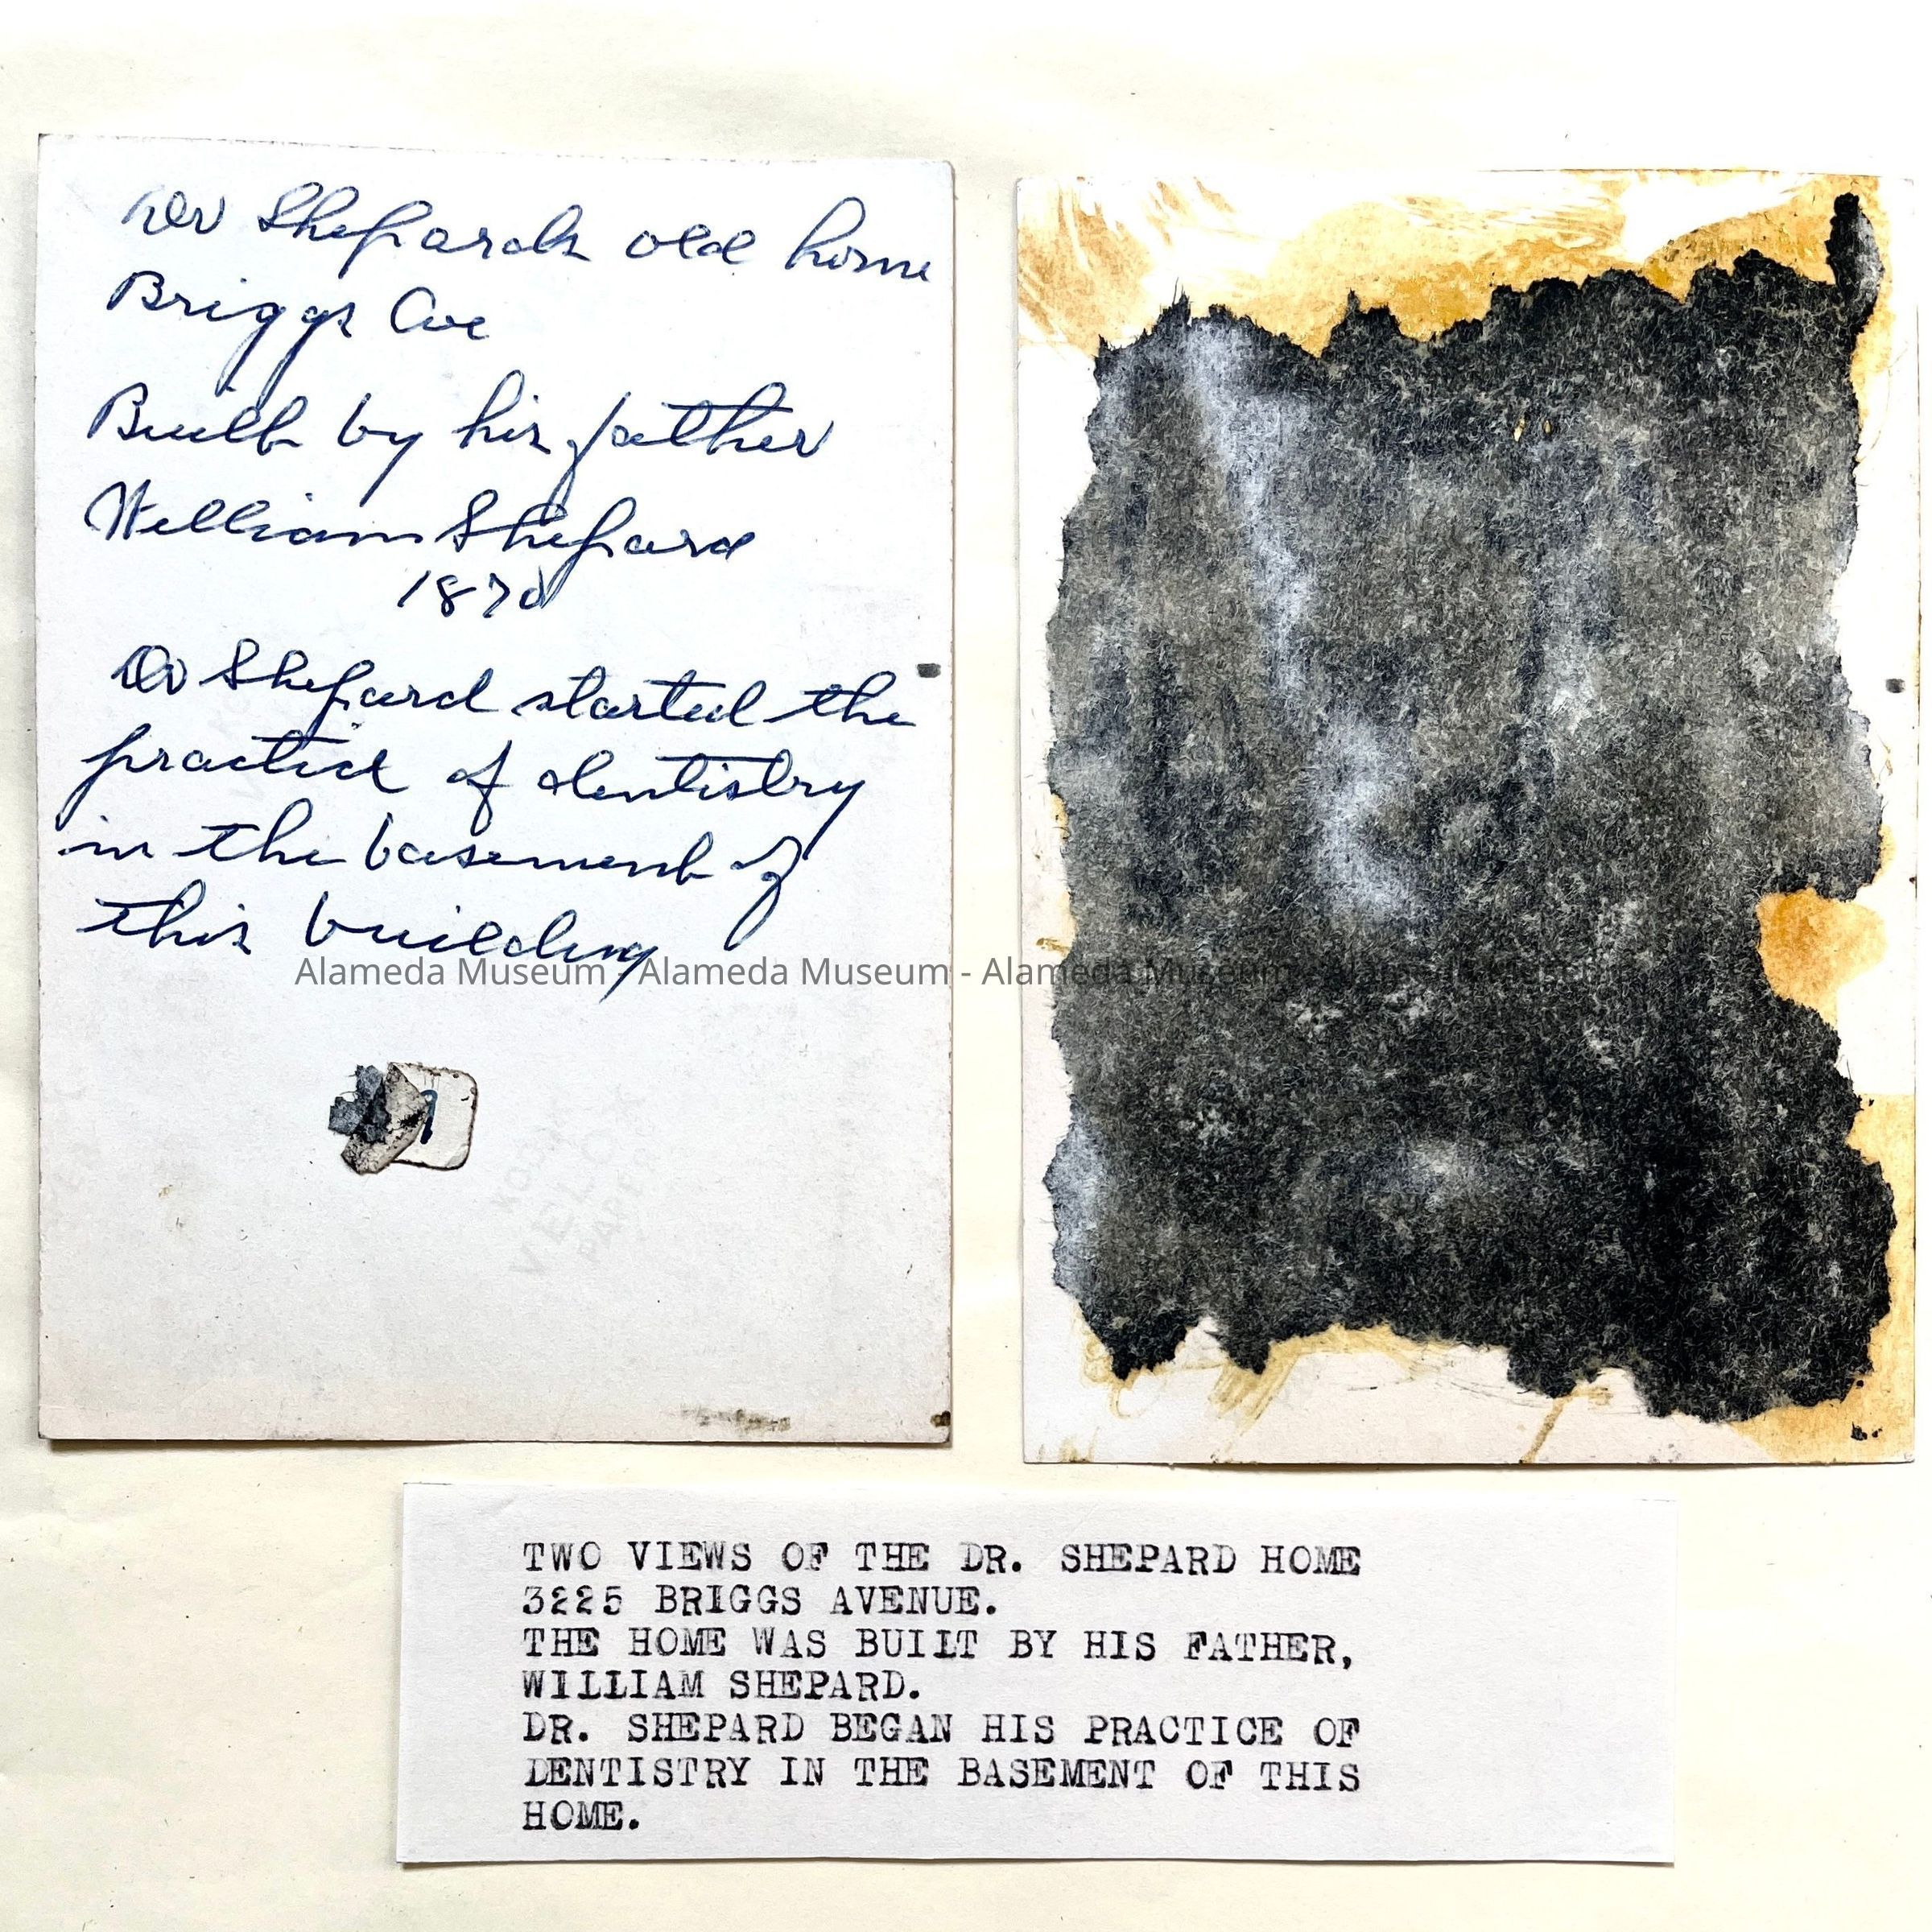 Dr Shepards old home
Briggs Ave
Built by his father
William Shepard
1870
Dr Shepard started the
practice of dentistry
in the basement of
this building
Alameda Museum - Alameda Museum - Alameda Museum - Alameda Museum
KODAK
VELOX
PAPER
TWO VIEWS OF THE DR. SHEPARD HOME
3225 BRIGGS AVENUE.
THE HOME WAS BUILT BY HIS FATHER,
WILLIAM SHEPARD.
DR. SHEPARD BEGAN HIS PRACTICE OF
DENTISTRY IN THE BASEMENT OF THIS
HOME.